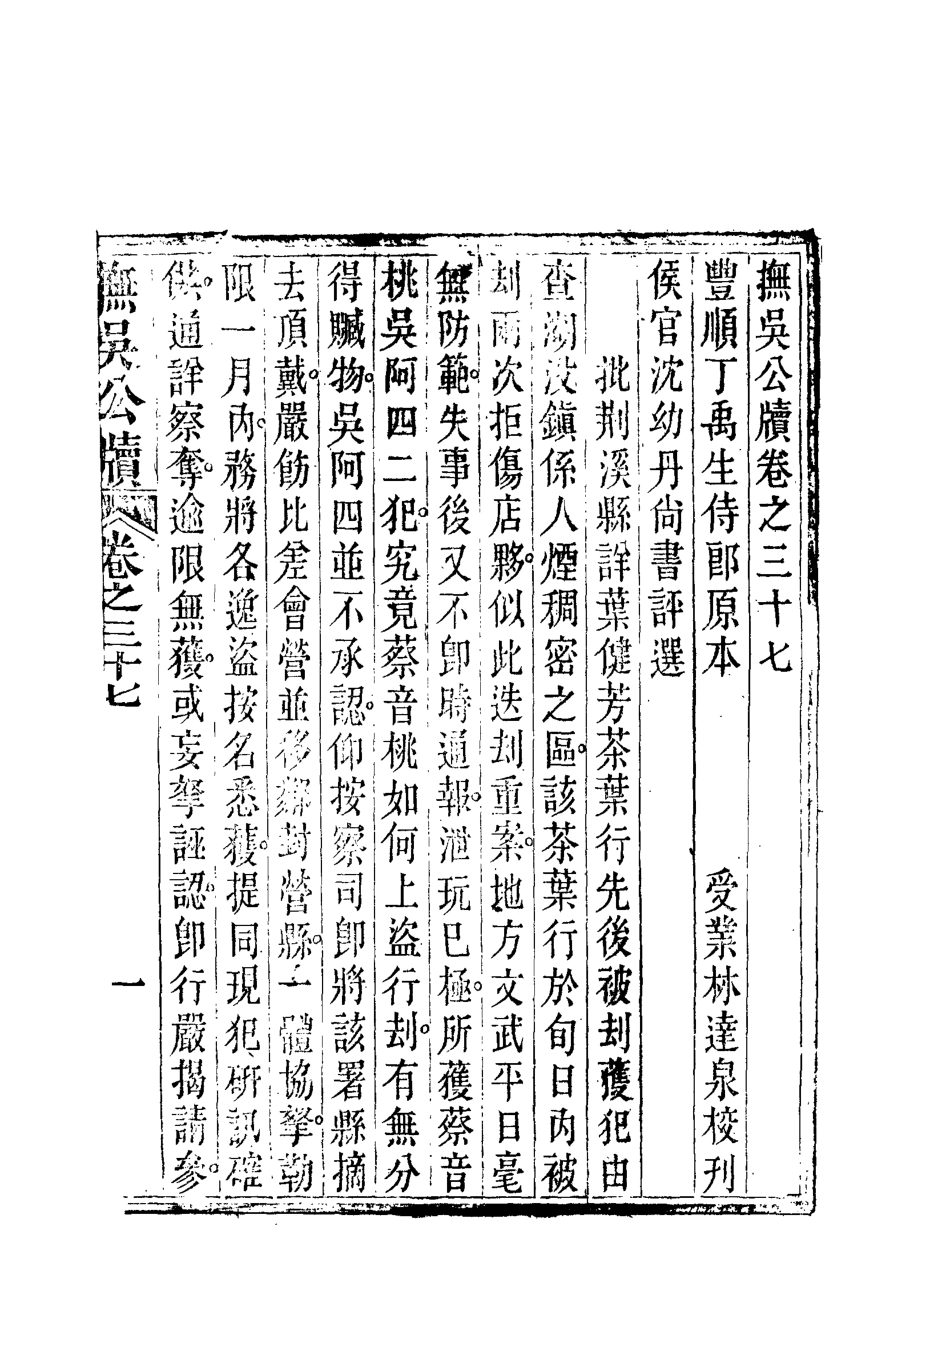 撫吳公牘卷之三十七
豐順丁禹生侍郎原本　受業林達泉校刊
侯官沈幼丹尚書評選
批荆溪縣詳葉健芳茶葉行先後被刦獲犯由
查湖㳇鎮係人煙稠密之區。該茶葉行於旬日內被
刦兩次拒傷店夥。似此迭刦重案。地方文武平日毫
無防範。失事後又不卽時通報。泄玩已極。所獲蔡音
桃吳阿四二犯。究竟蔡音桃如何上盜行刦。有無分
得贓物。吳阿四並不承認。仰按察司卽將該署縣摘
去頂戴。嚴飭比差會營並移鄰封營縣。一體協拏。勒
限一月內。務將各逸盜按名悉獲。提同現犯研訊確
供。通詳察奪。逾限無獲。或妄拏誣認。卽行嚴揭請參。
撫吳公牘　卷之三十七　一